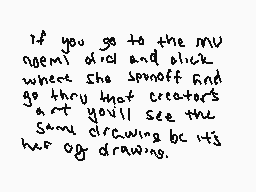 if you go to the mv
noemi did and click
where she spunoff and
go thru that creator's
art you'll see the
same drawing bc it's
her og drawing.